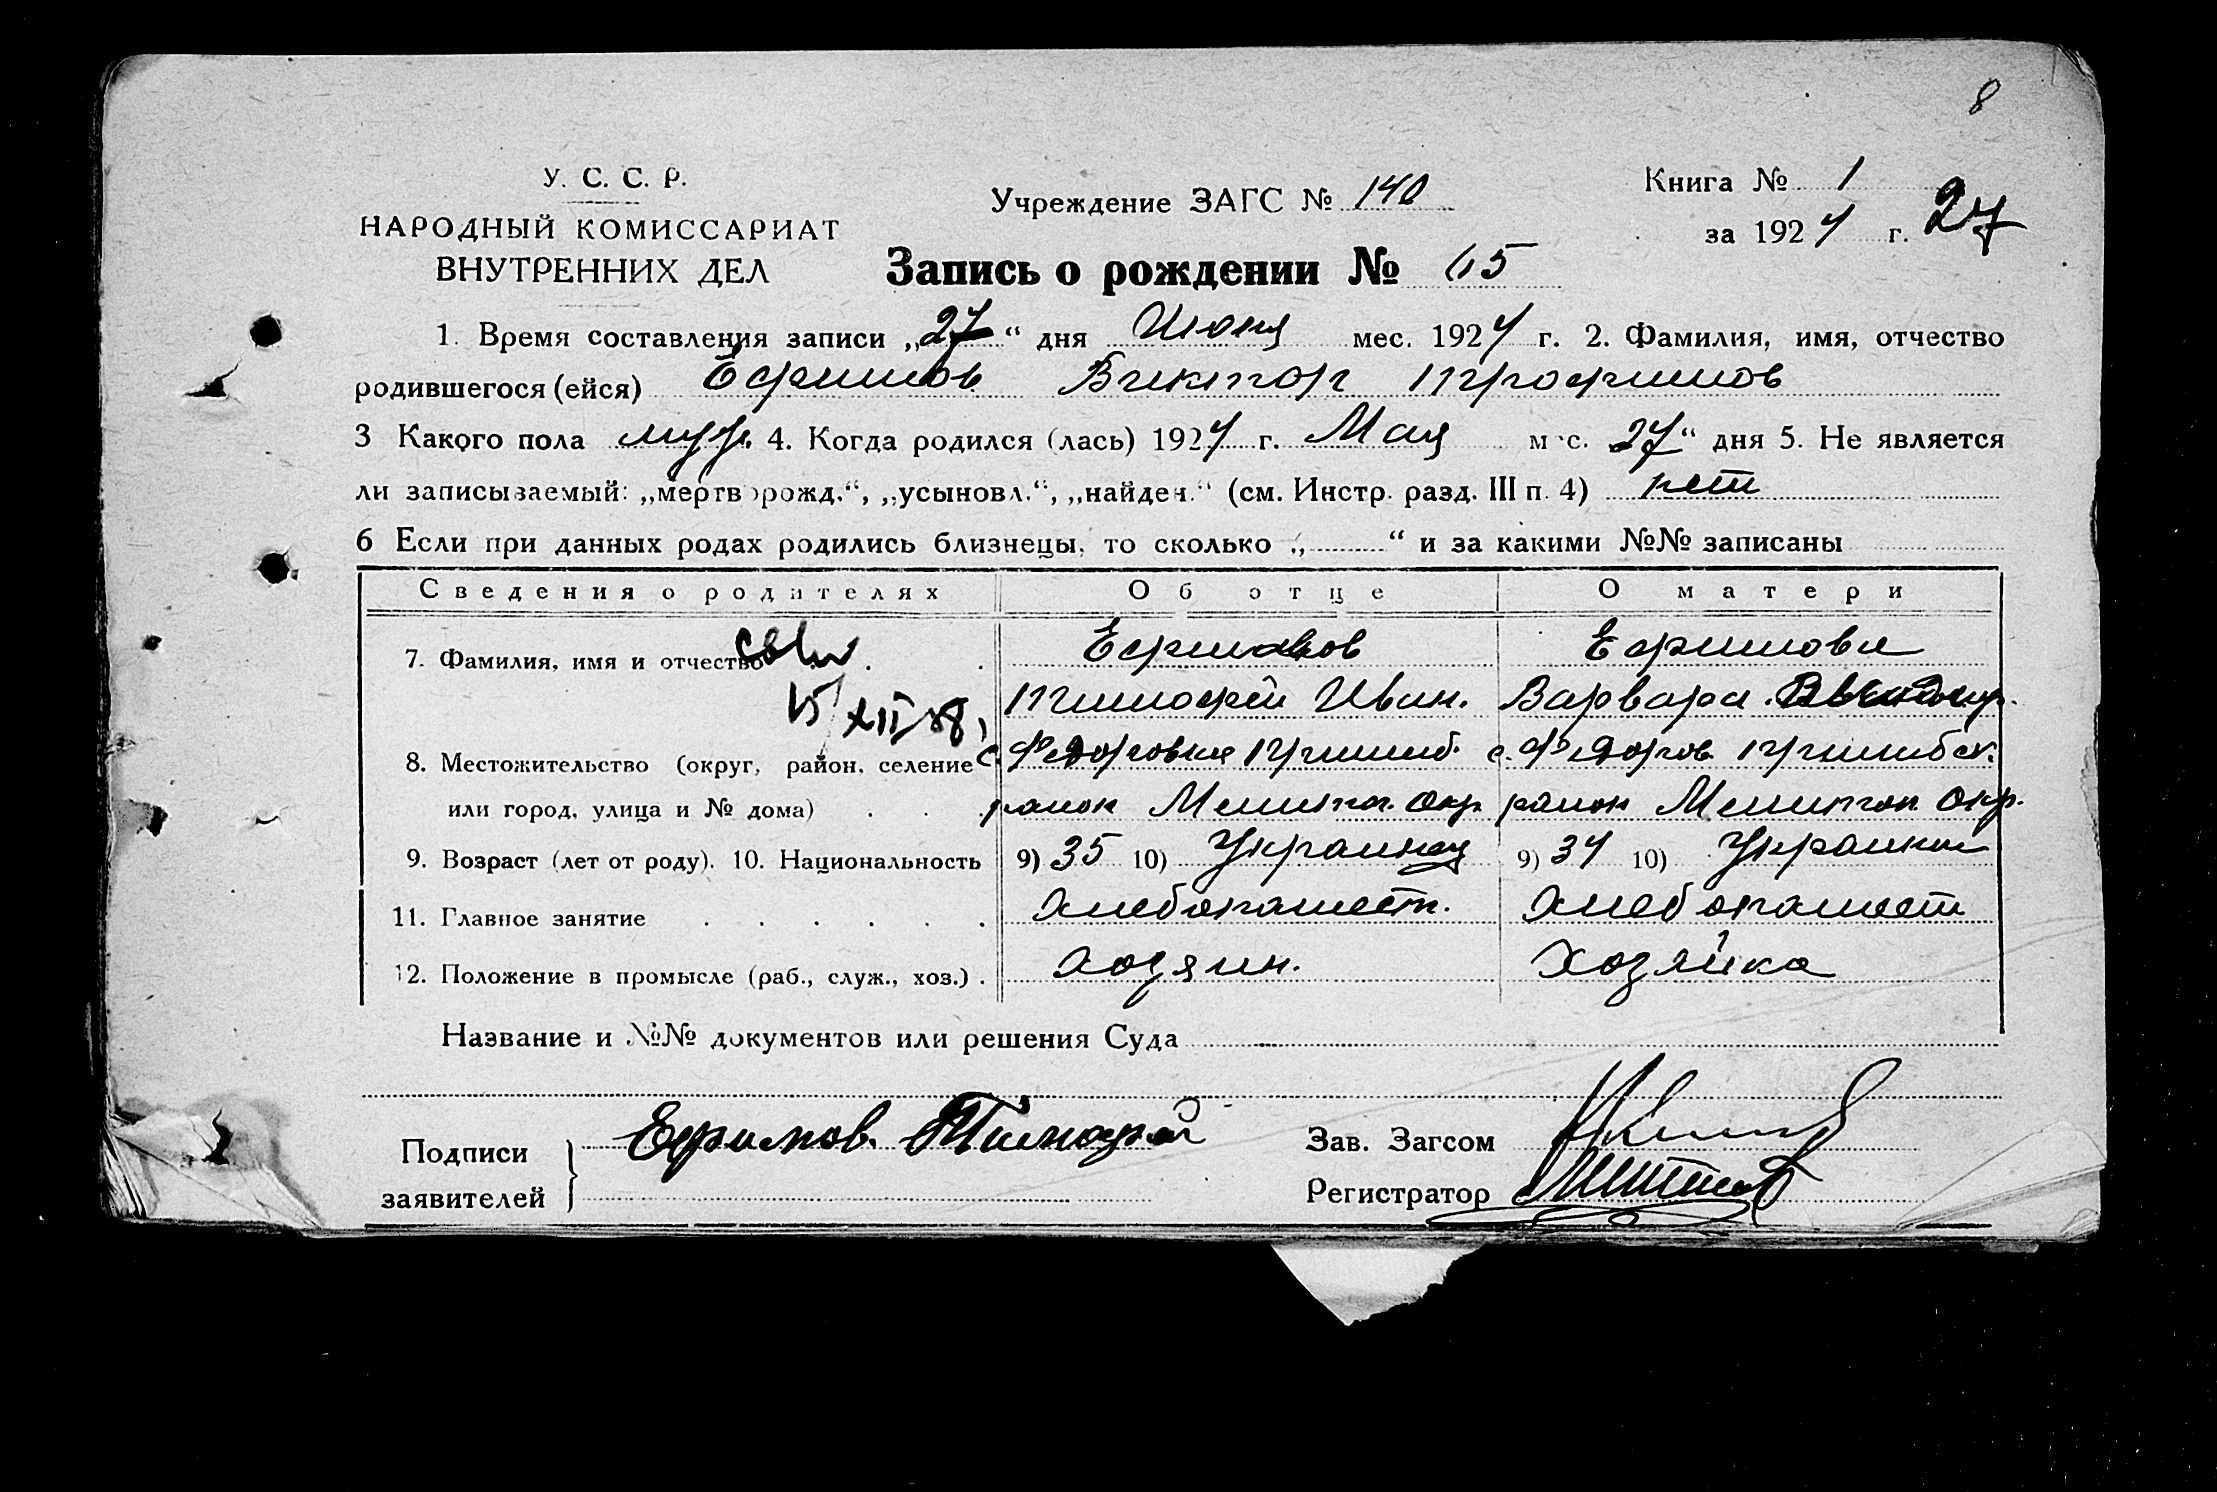 8
У. С. С. Р.
НАРОДНЫЙ КОМИССАРИАТ
ВНУТРЕННИХ ДЕЛ
Учреждение ЗАГС № 140
Книга № 1
за 1924 г. 27
Запись о рождении № 65
1. Время составления записи „27“ дня Июня мес. 1924 г. 2. Фамилия, имя, отчество
родившегося (ейся) Ефимов Виктор
3 Какого пола муж. 4. Когда родился (лась) 1924 г. Мая мес. 27“ дня 5. Не является
ли записываемый: „мертворожд.“, „усыновл.“, „найден.“ (см. Инстр. разд. III п. 4) нет
6 Если при данных родах родились близнецы, то сколько „ “ и за какими №№ записаны
Сведения о родителях Об отце О матери
7. Фамилия, имя и отчество Ефимов Ефимова
15/XII 88 Тимофей Иван. Варвара
8. Местожительство (округ, район, селение с. Федоровка с. Федоров.
или город, улица и № дома) район Мелитоп. окр район Мелитоп. окр.
9. Возраст (лет от роду). 10. Национальность 9) 35 10) Украинец 9) 34 10) Украинка
11. Главное занятие Хлебопашест. Хлебопашест
12. Положение в промысле (раб., служ., хоз.) . Хозяин. Хозяйка
Название и №№ документов или решения Суда
Подписи заявителей Ефимов Тимофей
Зав. Загсом
Регистратор